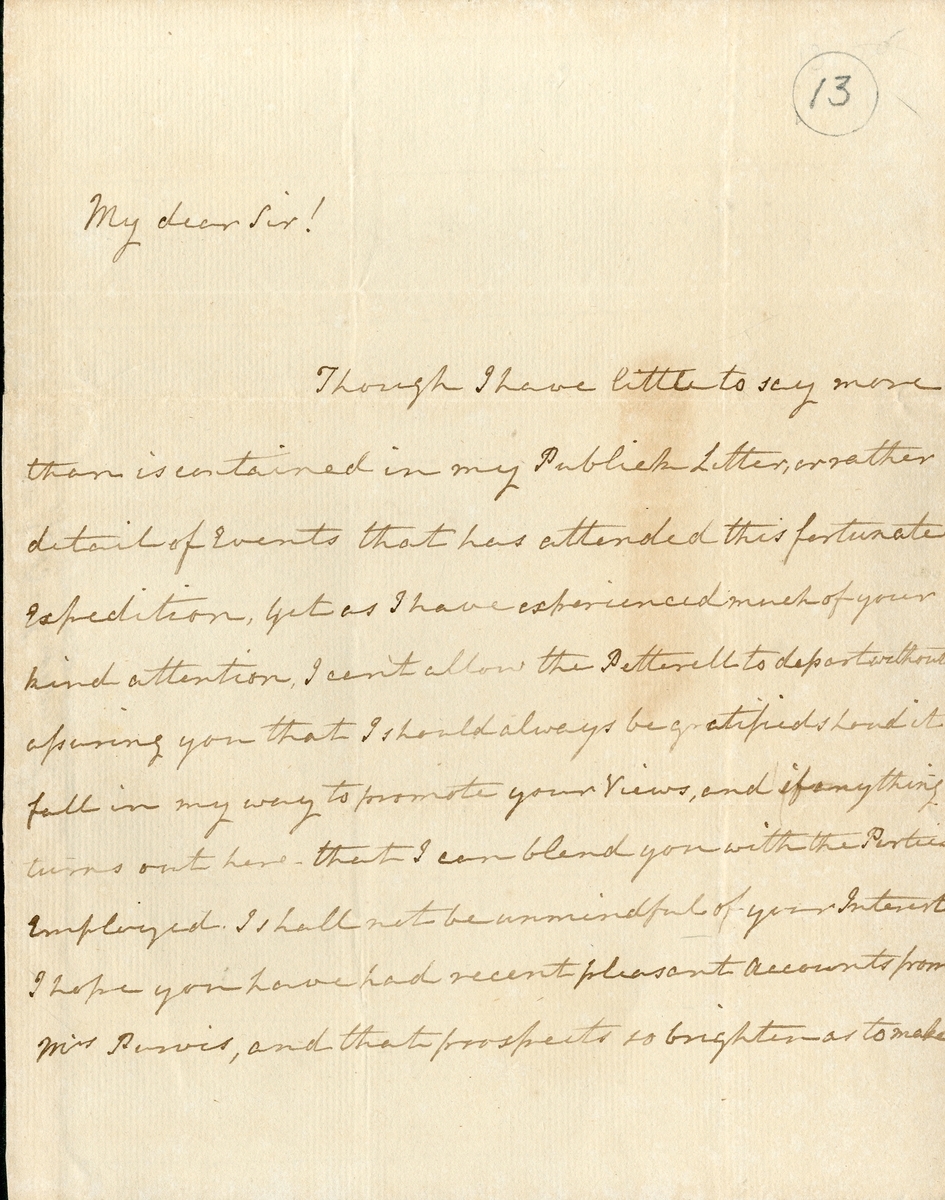 13
My dear Sir!
Though I have little to say more
than is contained in my Publick Letter, or rather
detail of Events that has attended this fortunate
Expedition, Yet as I have experienced much of your
kind attention, I cant allow the Petterell to depart without
assuring you that I should always be gratified should it
fall in my way to promote your Views, and if anything
turns out here that I can blend you with the Parties
Employed. I shall not be unmindful of your Interest
I hope you have had recent pleasant Accounts from
Mrs Purvis, and that prospects so brighten as to make